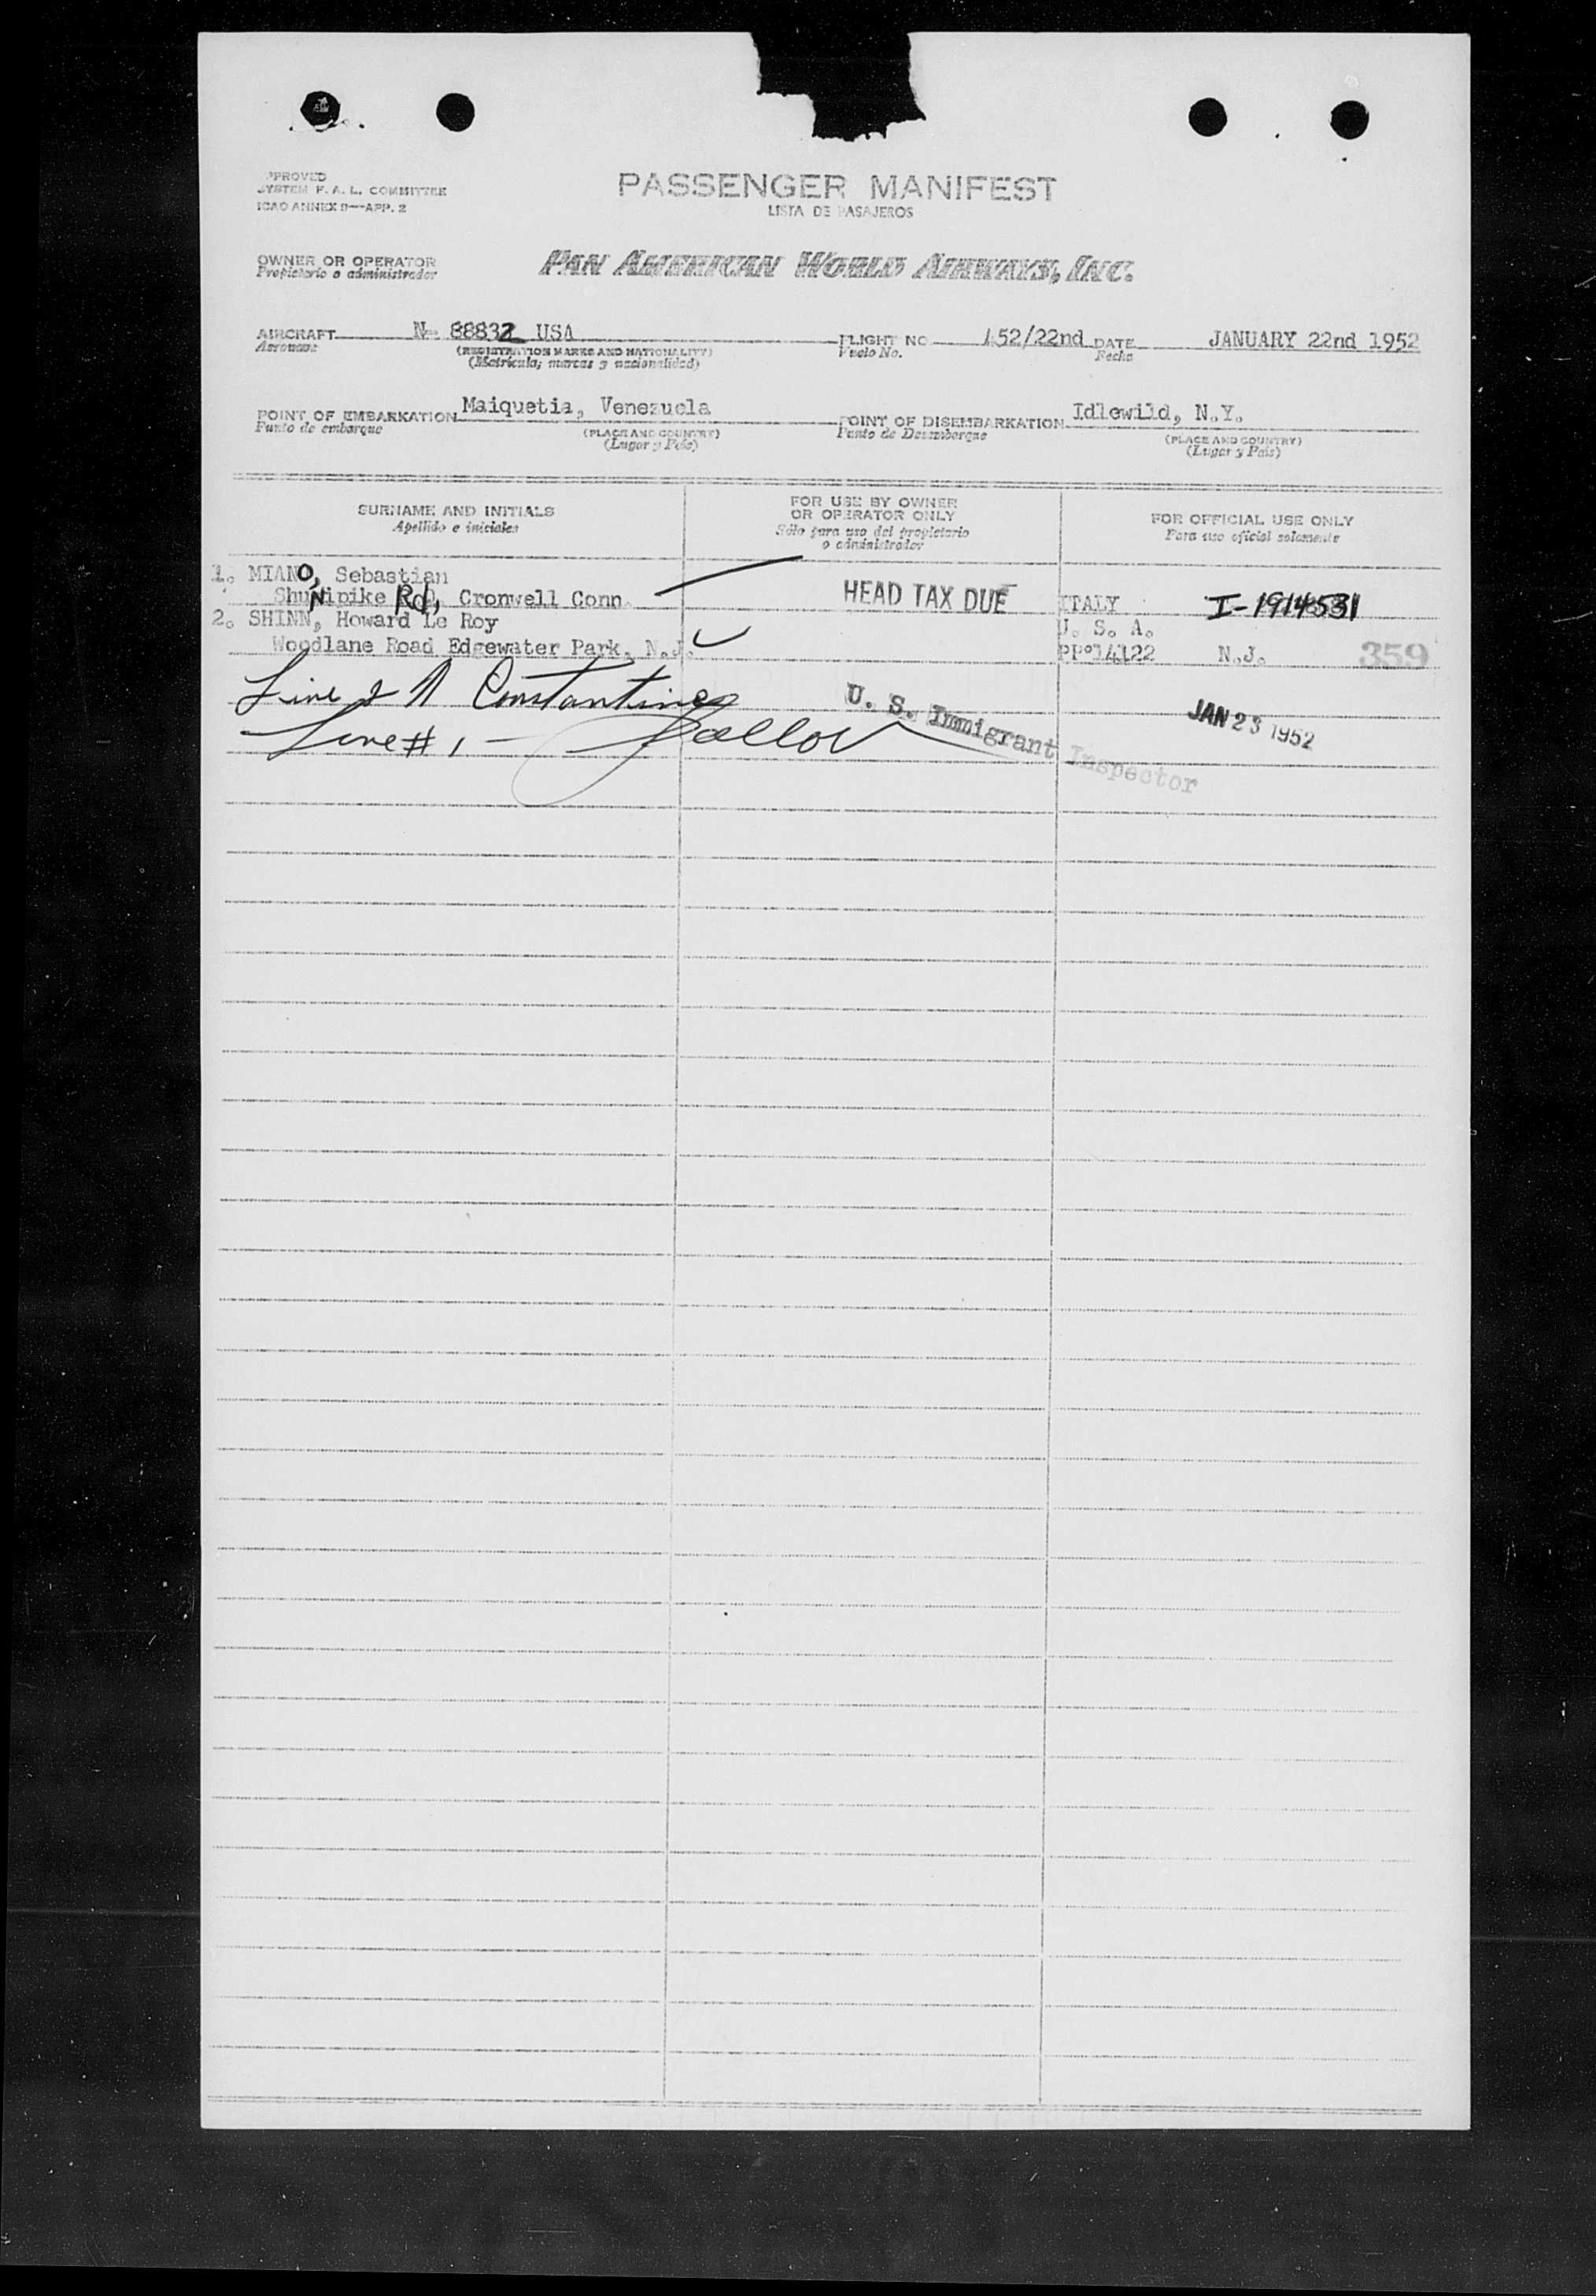 PPROVED
SYSTEM F. A. L. COMMITTEE
ICAO ANNEX 9—APP. 2
PASSENGER MANIFEST
LISTA DE PASAJEROS
OWNER OR OPERATOR
Propietario o administrador
PAN AMERICAN WORLD AIRWAYS, INC.
AIRCRAFT N- 88832 USA FLIGHT NO 152/22nd DATE JANUARY 22nd 1952
Aeronave (REGISTRATION MARKS AND NATIONALITY) Vuelo No. Fecha
(Matrícula, marcas y nacionalidad)
POINT OF EMBARKATION Maiquetia, Venezuela POINT OF DISEMBARKATION Idlewild, N.Y.
Punto de embarque (PLACE AND COUNTRY) Punto de Desembarque (PLACE AND COUNTRY)
(Lugar y País) (Lugar y País)
SURNAME AND INITIALS
Apellido e iniciales
FOR USE BY OWNER
OR OPERATOR ONLY
Sólo para uso del propietario
o administrador
FOR OFFICIAL USE ONLY
Para uso oficial solamente
1. MIANO, Sebastian
ShuNpike Rd, Cronwell Conn. HEAD TAX DUE ITALY I-1914531
2. SHINN, Howard Le Roy U. S. A.
Woodlane Road Edgewater Park, N.J. PPº14122 N.J. 359
Line 2 Constantine
Line # 1 -
U. S. Immigrant Inspector
JAN 23 1952